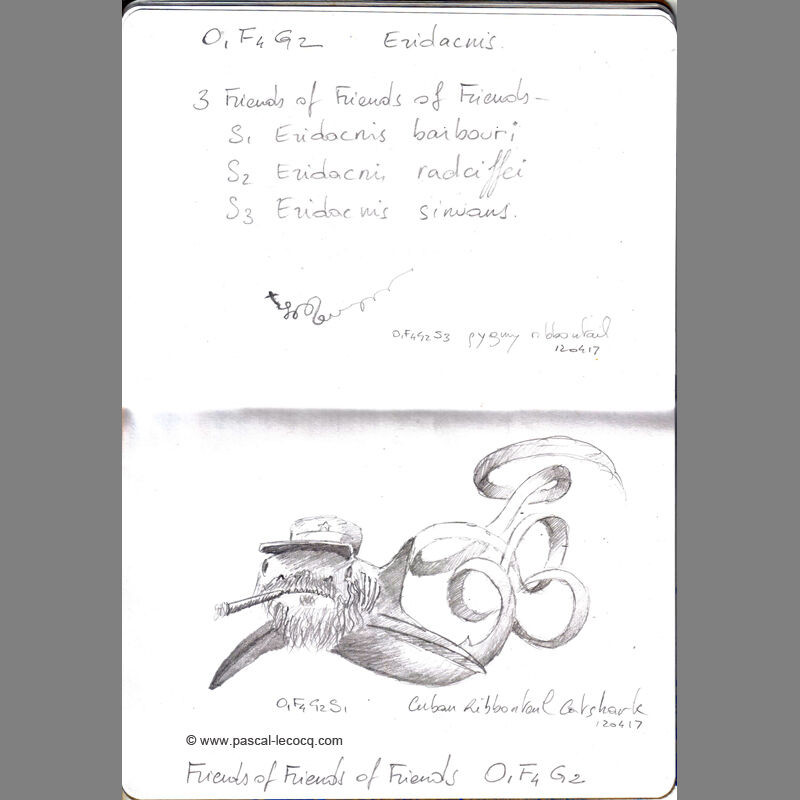 O1F4G2 Eridacnis.
3 Friends of Friends of Friends -
S1 Eridacnis barbouri
S2 Eridacnis radcliffei
S3 Eridacnis sinuans.
O1F4G2S3 pygmy ribbontail
120417
O1F4G2S1 Cuban Ribbontail Catshark
120417
© www.pascal-lecocq.com
Friends of Friends of Friends O1F4G2